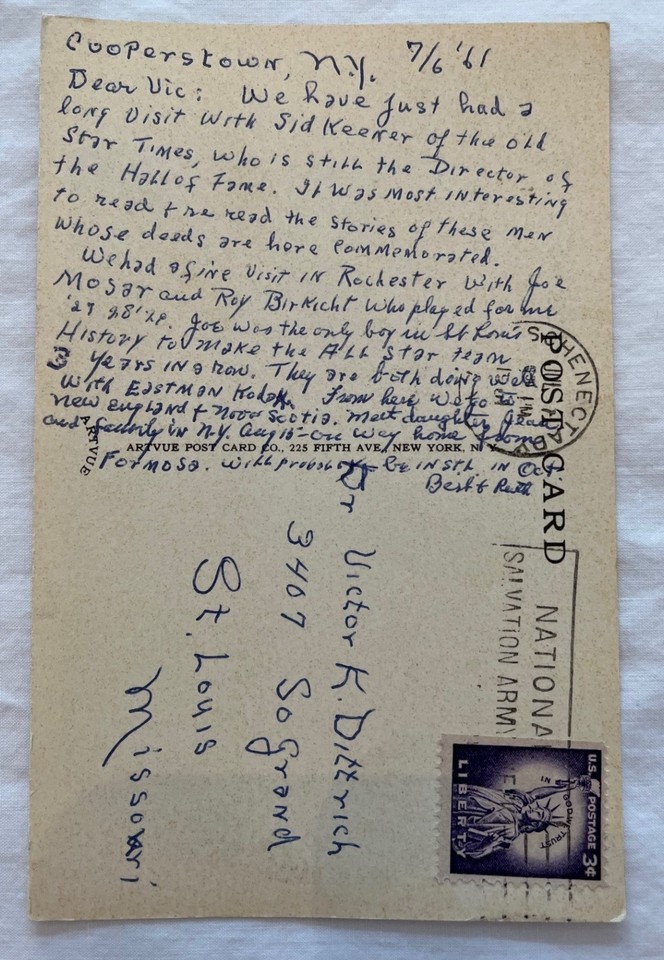 Cooperstown, N.Y. 7/6 '61
Dear Vic: We have just had a
long visit with Sid Keener of the old
Star Times, who is still the Director of
the Hall of Fame. It was most interesting
to read & re read the stories of these men
whose deeds are here commemorated.
We had a fine visit in Rochester with Joe
Mosar and Roy Birkicht who played for me
'27 28 '29. Joe was the only boy in St Louis
History to make the All Star team
3 years in a row. They are both doing well
with Eastman Kodak. From here we go to
New England & Nova Scotia. Meet daughter
and family in N.Y. Aug 15 on way home from
Formosa. Will probably be in St L. in Oct
Best &
ARTVUE
ARTVUE POST CARD CO., 225 FIFTH AVE., NEW YORK, N.Y.
POST CARD
SCHENECTADY
1 PM
1961
NATIONAL
SALVATION ARMY
U.S. POSTAGE 3¢
IN GOD WE TRUST
LIBERTY
Dr Victor K. Dittrich
3407 So Grand
St. Louis
Missouri